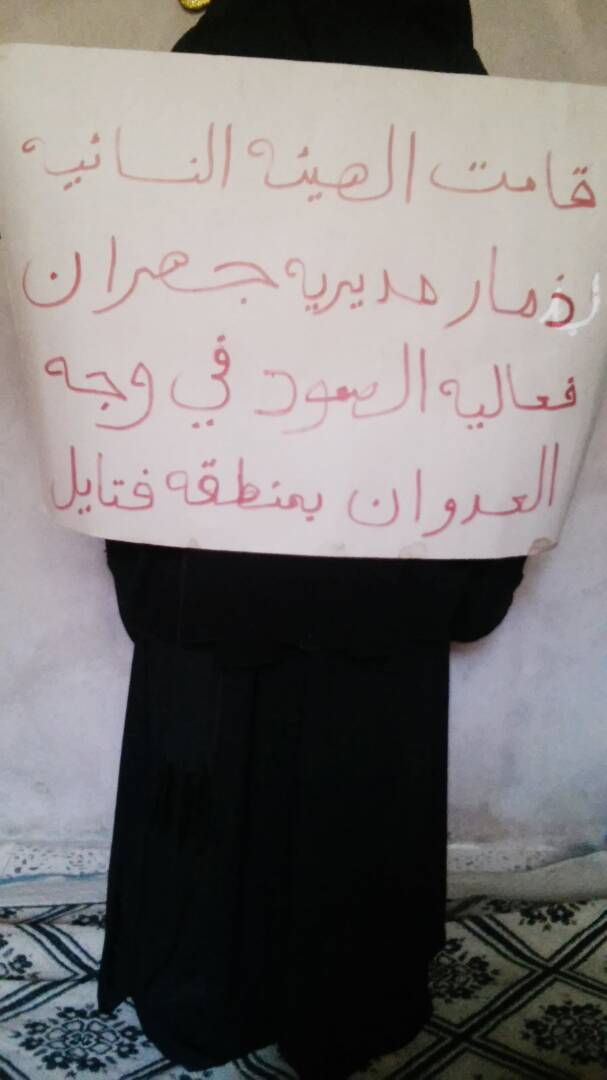 قامت الهيئه النسائيه
بذمار مديريه جهران
فعاليه الصمود في وجه
العدوان بمنطقه فتايل